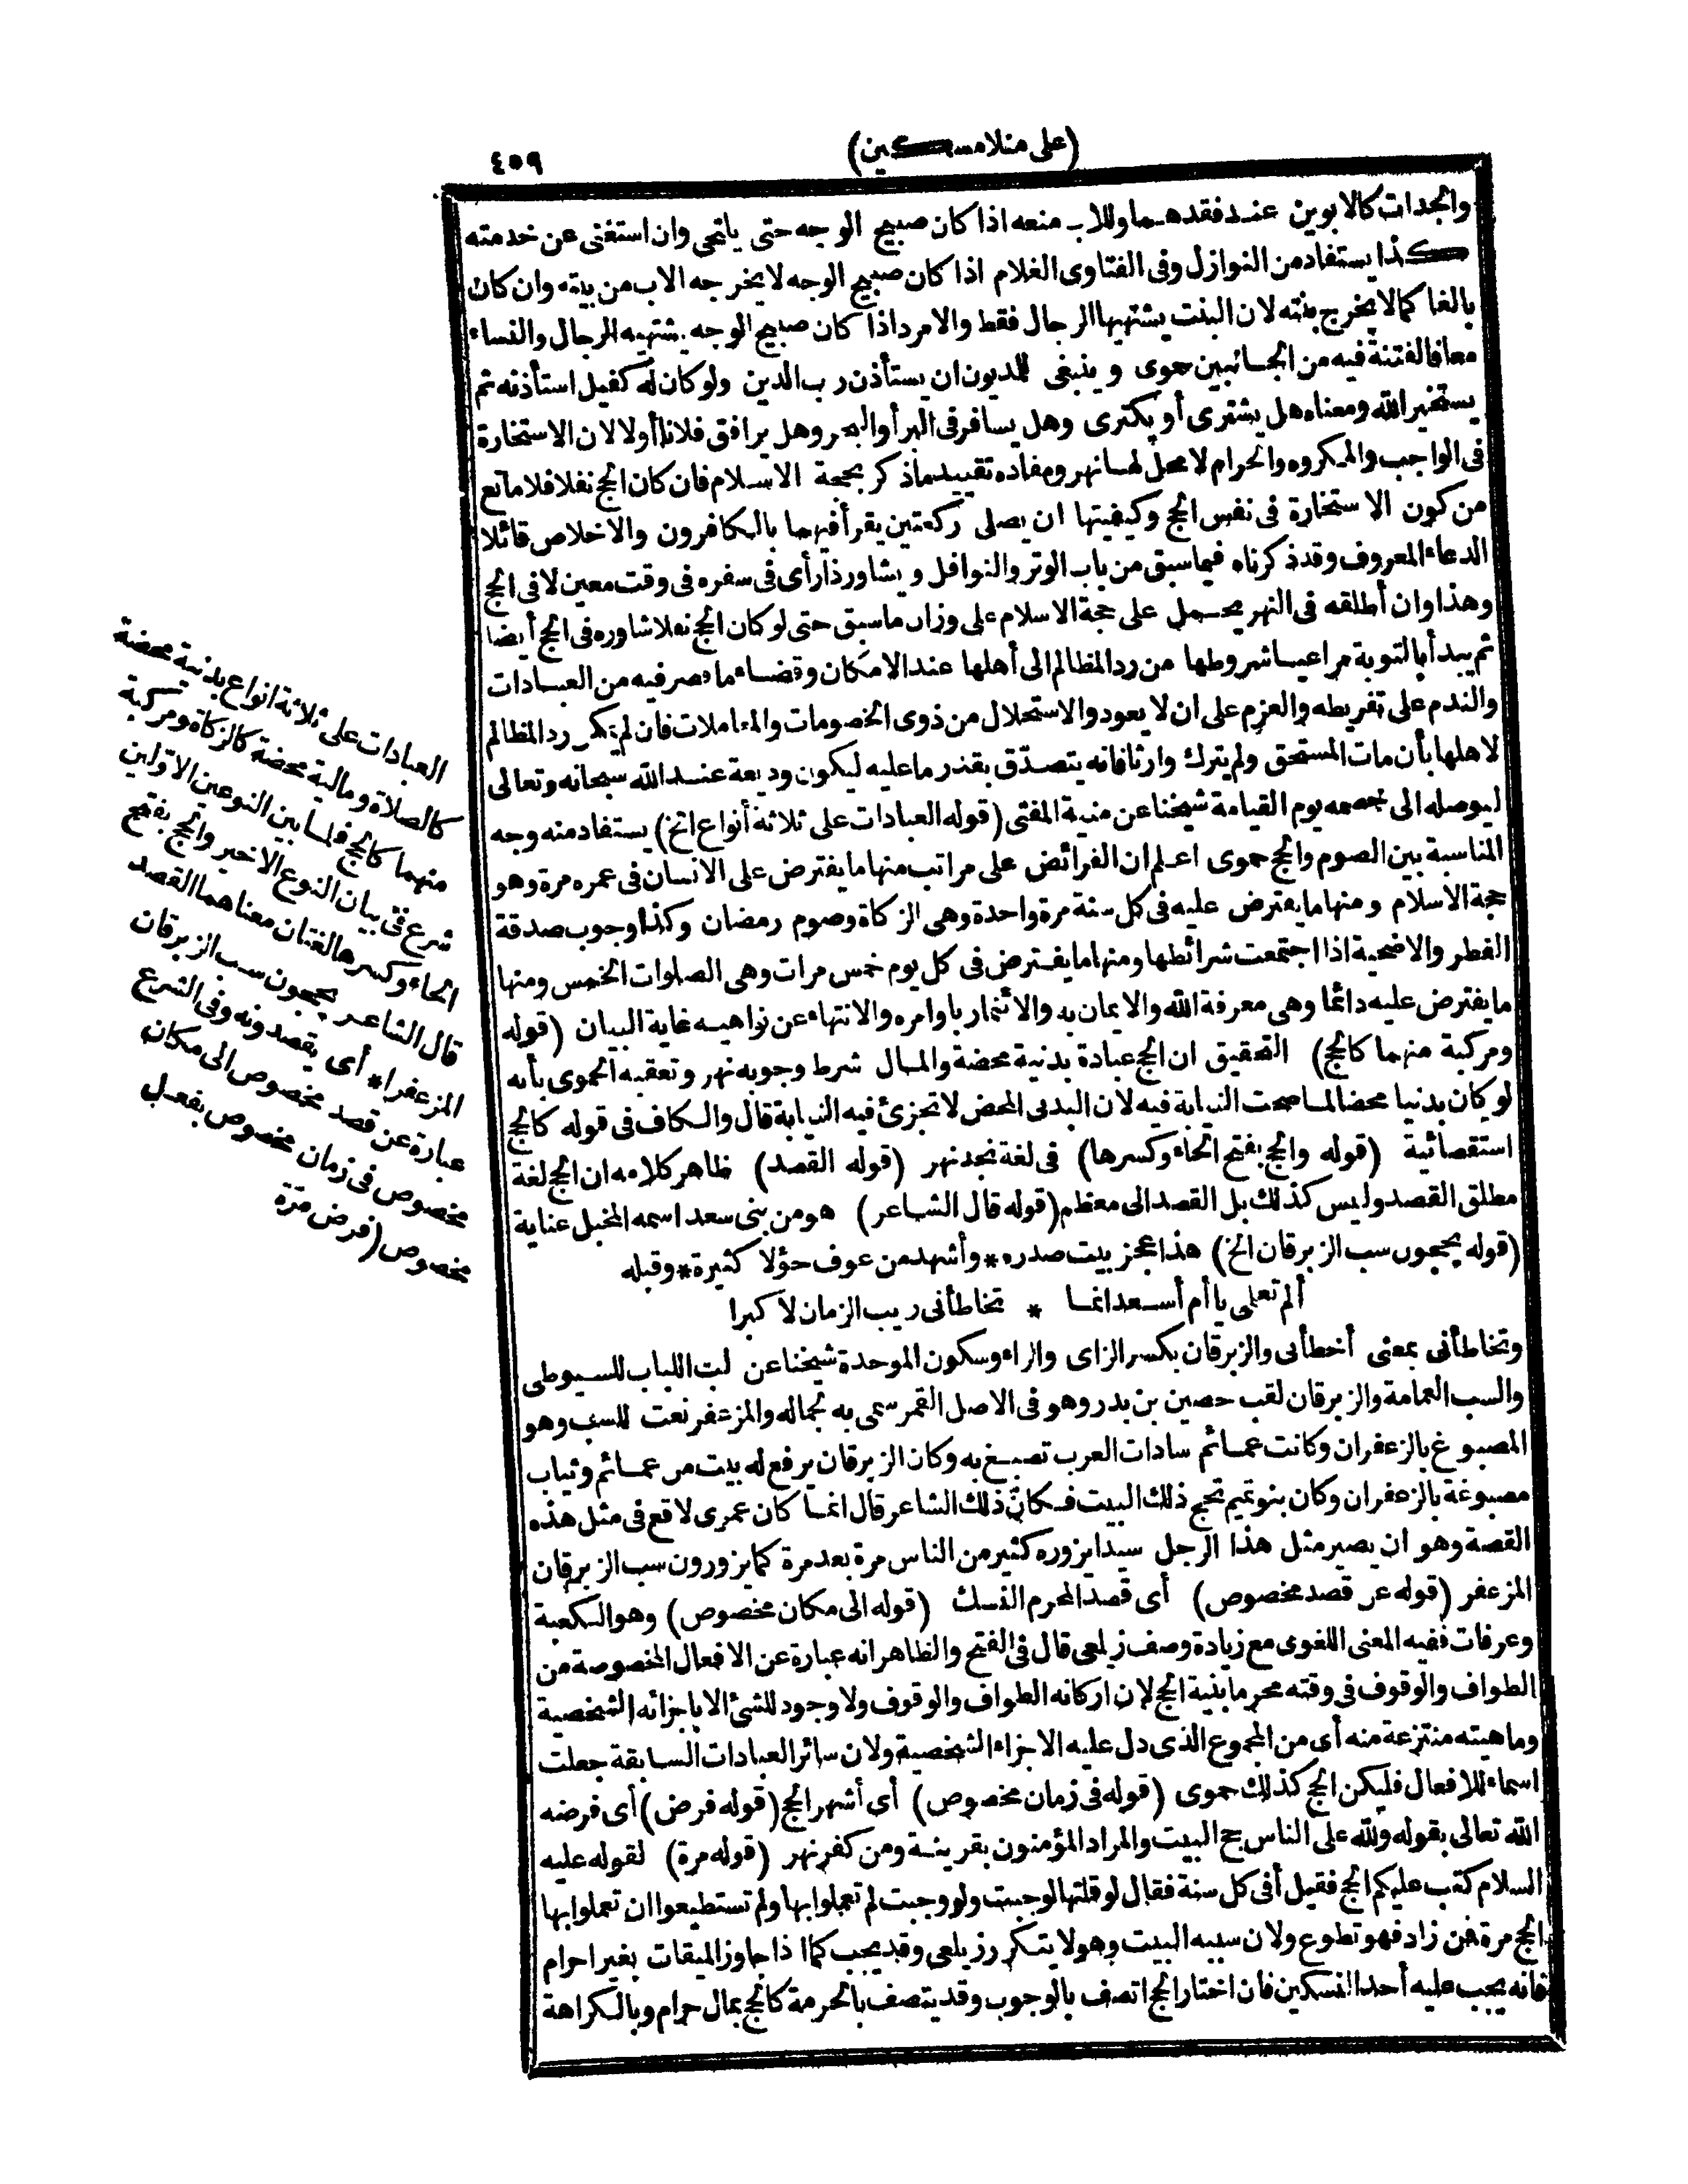 (على منلامسكين)
٤٥٩
والجدات كالابوين عند فقدهما وللاب منعه اذا كان صبيح الوجه حتى يلتحى وان استغنى عن خدمته
كذا يستفاد من النوازل وفى الفتاوى الغلام اذا كان صبيح الوجه لا يخرجه الاب من بيته وان كان
بالغا كمالا يخرج بنته لان البنت يشتهيها الرجال فقط والامرد اذا كان صبيح الوجه يشتهيه الرجال والنساء
معا فالفتنة فيه من الجانبين حموى وينبغى للمديون ان يستأذن رب الدين ولو كان له كفيل استأذنه ثم
يستخير الله ومعناه هل يشترى أو يكترى وهل يسافر فى البر أو البحر وهل يرافق فلانا أولا لان الاستخارة
فى الواجب والمكروه والحرام لا محل لها نهر ومفاده تقييد ماذكر بحجة الاسلام فان كان الحج نفلا فلا مانع
من كون الاستخارة فى نفس الحج وكيفيتها ان يصلى ركعتين يقرأ فيهما بالكافرون والاخلاص قائلا
الدعاء المعروف وقد ذكرناه فيما سبق من باب الوتر والنوافل ويشاور ذا رأى فى سفره فى وقت معين لا فى الحج
وهذا وان أطلقه فى النهر يحمل على حجة الاسلام على وزان ما سبق حتى لو كان الحج نفلا شاوره فى الحج أيضا
ثم يبدأ بالتوبة مراعيا شروطها من رد المظالم الى أهلها عند الامكان وقضاء ما قصر فيه من العبادات
والندم على تفريطه والعزم على ان لا يعود والاستحلال من ذوى الخصومات والمعاملات فان لم يمكن رد المظالم
لاهلها بأن مات المستحق ولم يترك وارثا فانه يتصدّق بقدر ما عليه ليكون وديعة عند الله سبحانه وتعالى
ليوصله الى خصمه يوم القيامة شيخنا عن منية المفتى (قوله العبادات على ثلاثة أنواع الخ) يستفاد منه وجه
المناسبة بين الصوم والحج حموى اعلم ان الفرائض على مراتب منها ما يفترض على الانسان فى عمره مرة وهو
حجة الاسلام ومنها ما يفترض عليه فى كل سنة مرة واحدة وهى الزكاة وصوم رمضان وكذا وجوب صدقة
الفطر والاضحية اذا اجتمعت شرائطها ومنها ما يفترض فى كل يوم خمس مرات وهى الصلوات الخمس ومنها
ما يفترض عليه دائما وهى معرفة الله والايمان به والائتمار باوامره والانتهاء عن نواهيه غاية البيان (قوله
ومركبة منهما كالحج) التحقيق ان الحج عبادة بدنية محضة والمال شرط وجوبه نهر وتعقبه الحموى بأنه
لو كان بدنيا محضا لما صحت النيابة فيه لان البدنى المحض لا تجزئ فيه النيابة قال والكاف فى قوله كالحج
استقصائية (قوله والحج بفتح الحاء وكسرها) فى لغة نجد نهر (قوله القصد) ظاهر كلامه ان الحج لغة
مطلق القصد وليس كذلك بل القصد الى معظم (قوله قال الشاعر) هو من بنى سعد اسمه المخبل عناية
(قوله يحجون سب الزبرقان الخ) هذا عجز بيت صدره * وأشهد من عوف حؤلا كثيرة * وقبله
ألم تعلمى يا أم أسعد انما * تخاطأنى ريب الزمان لأكبرا
وتخاطأنى بمعنى أخطأنى والزبرقان بكسر الزاى والراء وسكون الموحدة شيخنا عن لب اللباب للسيوطى
والسب العمامة والزبرقان لقب حصين بن بدر وهو فى الاصل القمر سمى به لجماله والمزعفر نعت للسب وهو
المصبوغ بالزعفران وكانت عمائم سادات العرب تصبغ به وكان الزبرقان يرفع له بيت من عمائم وثياب
مصبوغة بالزعفران وكان بنو تميم تحج ذلك البيت فكانّ ذلك الشاعر قال انما كان عمرى لاقع فى مثل هذه
القصة وهو ان يصير مثل هذا الرجل سيدا يزوره كثير من الناس مرة بعد مرة كما يزورون سب الزبرقان
المزعفر (قوله عن قصد مخصوص) أى قصد المحرم النسك (قوله الى مكان مخصوص) وهو الكعبة
وعرفات ففيه المعنى اللغوى مع زيادة وصف زيلعى قال فى الفتح والظاهر انه عبارة عن الافعال المخصوصة من
الطواف والوقوف فى وقته محرما بنية الحج لان اركانه الطواف والوقوف ولا وجود للشئ الا باجزائه الشخصية
وماهيته منتزعة منه أى من المجموع الذى دل عليه الاجزاء الشخصية ولان سائر العبادات السابقة جعلت
اسماء للافعال فليكن الحج كذلك حموى (قوله فى زمان مخصوص) أى أشهر الحج (قوله فرض) أى فرضه
الله تعالى بقوله ولله على الناس حج البيت والمراد المؤمنون بقرينة ومن كفر نهر (قوله مرة) لقوله عليه
السلام كتب عليكم الحج فقيل أفى كل سنة فقال لو قلتها لوجبت ولو وجبت لم تعملوا بها ولم تستطيعوا ان تعملوا بها
الحج مرة فمن زاد فهو تطوع ولان سببه البيت وهو لا يتكرر زيلعى وقد يجب كما اذا جاوز الميقات بغير احرام
فانه يجب عليه أحد النسكين فان اختار الحج اتصف بالوجوب وقد يتصف بالحرمة كالحج بمال حرام وبالكراهة
العبادات على ثلاثة انواع بدنية محضة
كالصلاة ومالية محضة كالزكاة ومركبة
منهما كالحج فلما بين النوعين الاوّلين
شرع فى بيان النوع الاخير والحج بفتح
الحاء وكسرها لغتان معناهما القصد
قال الشاعر يحجون سب الزبرقان
المزعفرا * أى يقصدونه وفى الشرع
عبارة عن قصد مخصوص الى مكان
مخصوص فى زمان مخصوص بفعل
مخصوص (فرض مرّة